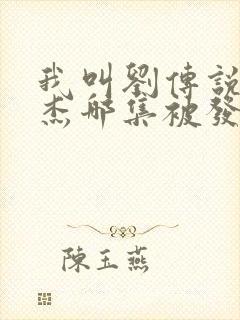 我叫劉傳說
杰哪集被發
陳玉燕